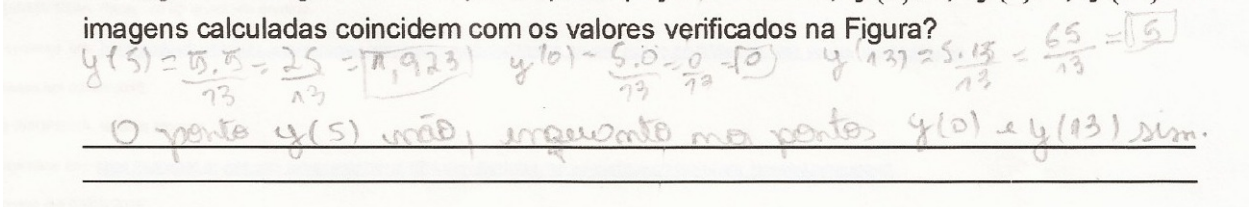 imagens calculadas coincidem com os valores verificados na Figura?
y(5) = 5.5/13 = 25/13 = 1,923 y(0) = 5.0/13 = 0/13 = 0 y(13) = 5.13/13 = 65/13 = 5
O ponto y(5) não, enquanto nos pontos y(0) e y(13) sim.